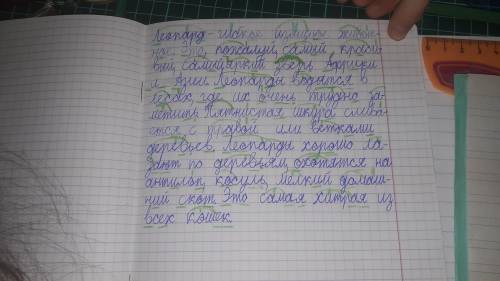 Леопард - гибкое изящное живот-
ное. это, пожалуй, самый краси-
вый, самый яркий зверь Африки
и Азии. Леопарды водятся в
лесах, где их очень трудно за-
метить. Пятнистая шкура слива-
ется с травой или ветками
деревьев. Леопарды хорошо ла-
зают по деревьям, охотятся на
антилоп, косуль, мелкий домаш-
ний скот. Это самая хитрая из
всех кошек.